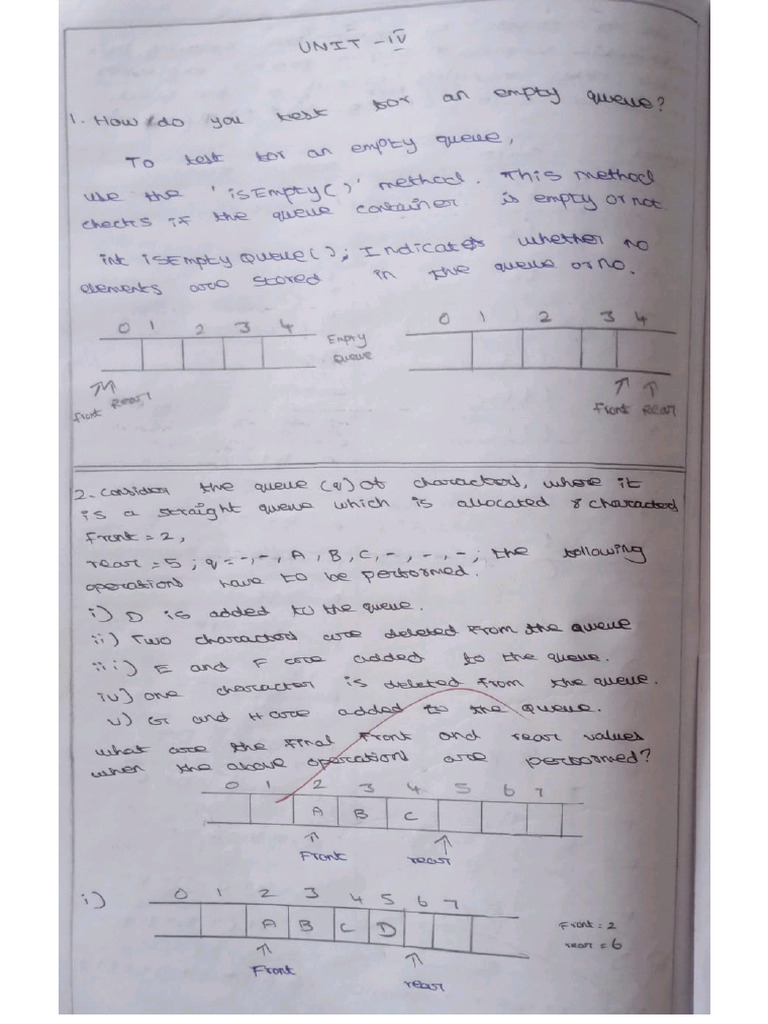 UNIT - IV
1. How do you test for an empty queue?
To test for an empty queue,
use the 'isEmpty()' method. This method
checks if the queue container is empty or not.
int isEmpty Queue(); Indicates whether no
elements are stored in the queue or no.
0 1 2 3 4 Empty Queue 0 1 2 3 4
Front Rear Front Rear
2. Consider the queue (q) of characters, where it
is a straight queue which is allocated 8 characters
Front = 2,
rear = 5; q = -, -, A, B, C, -, -, -; the following
operations have to be performed.
i) D is added to the queue.
ii) Two characters are deleted from the queue
iii) E and F are added to the queue.
iv) one character is deleted from the queue.
v) G and H are added to the queue.
what are the final front and rear values
when the above operations are performed?
0 1 2 3 4 5 6 7
A B C
Front rear
i) 0 1 2 3 4 5 6 7
A B C D Front = 2
rear = 6
Front rear